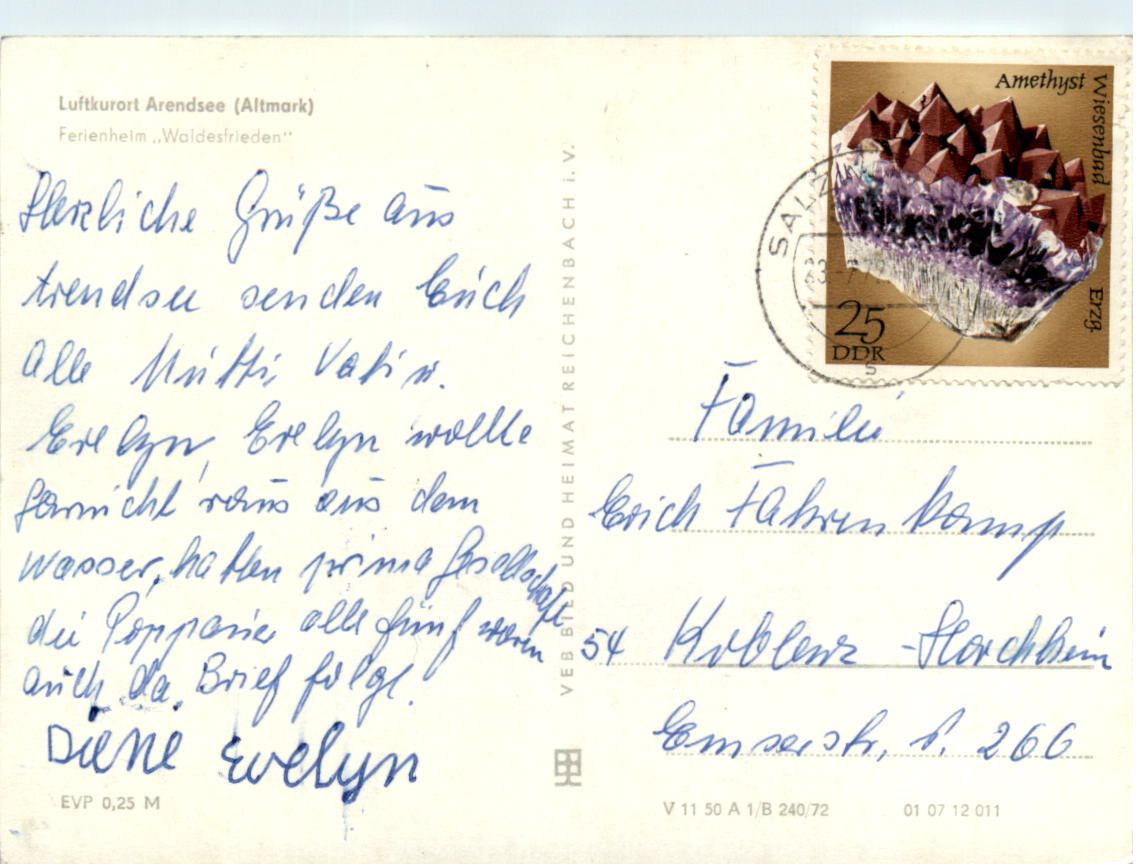 Luftkurort Arendsee (Altmark)
Ferienheim „Waldesfrieden"
Herzliche Grüße aus
Arendsee senden Euch
alle Mutti, Vati u.
Evelyn, Evelyn wollte
garnicht raus aus dem
Wasser, hatten prima Gesellschaft
die Poppauer alle fünf waren
auch da. Brief folgt.
Diene Evelyn
EVP 0,25 M
VEB BILD UND HEIMAT REICHENBACH i. V.
Amethyst
Wiesenbad
Erzg.
25
DDR
SALZ
S
Familie
Erich Fahrenkamp
54 Koblenz - Horchheim
Emserstr. 266
V 11 50 A 1/B 240/72
01 07 12 011